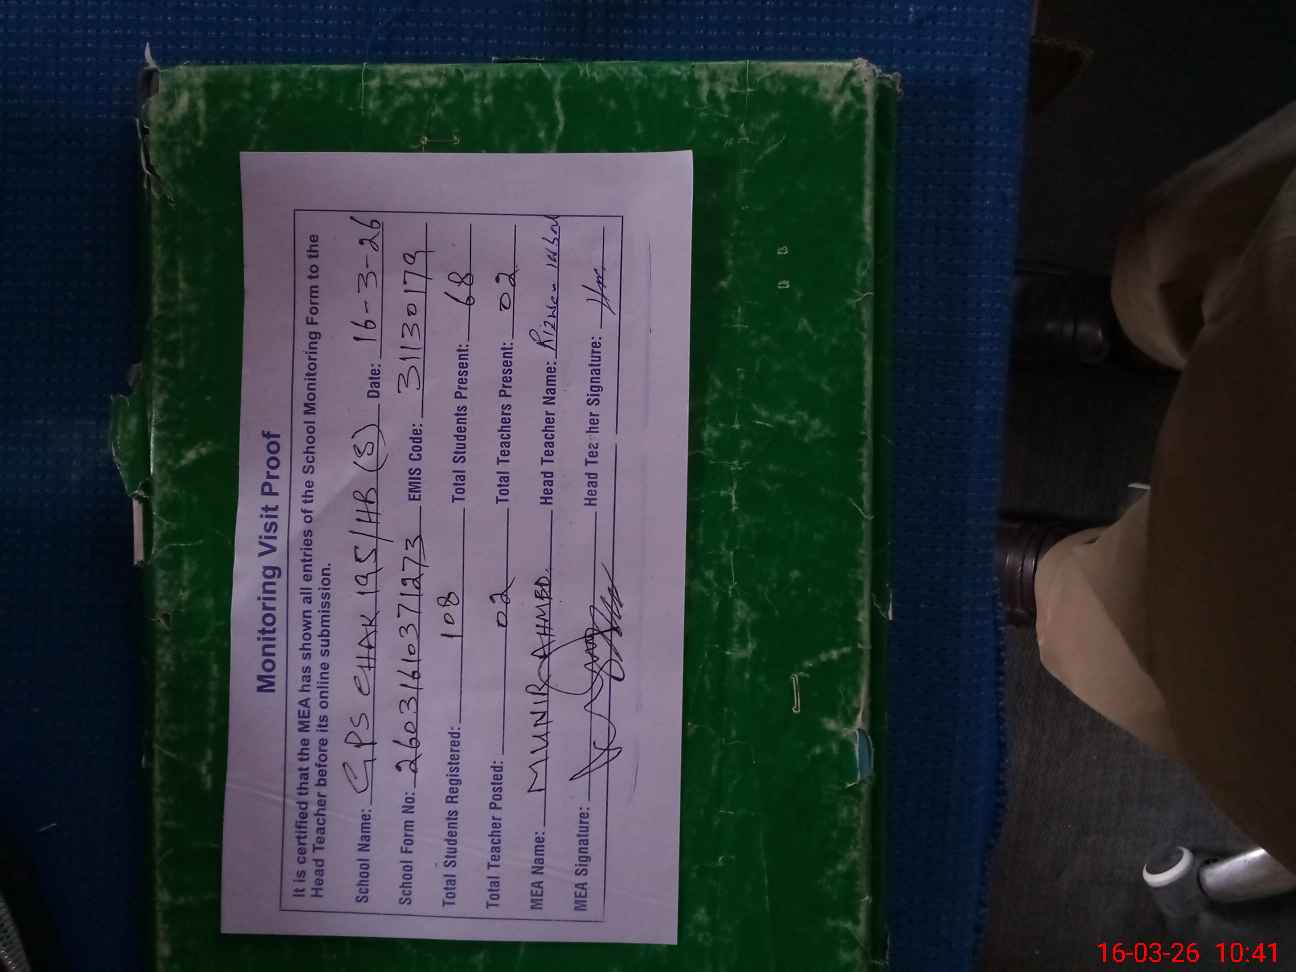 Monitoring Visit Proof
It is certified that the MEA has shown all entries of the School Monitoring Form to the
Head Teacher before its online submission.
School Name: GPS CHAK 195/HB (S) Date: 16-3-26
School Form No: 2603161071273 EMIS Code: 31130179
Total Students Registered: 108 Total Students Present: 68
Total Teacher Posted: 02 Total Teachers Present: 02
MEA Name: MUNIR AHMED. Head Teacher Name: Rizwan
MEA Signature: Head Teacher Signature:
16-03-26 10:41